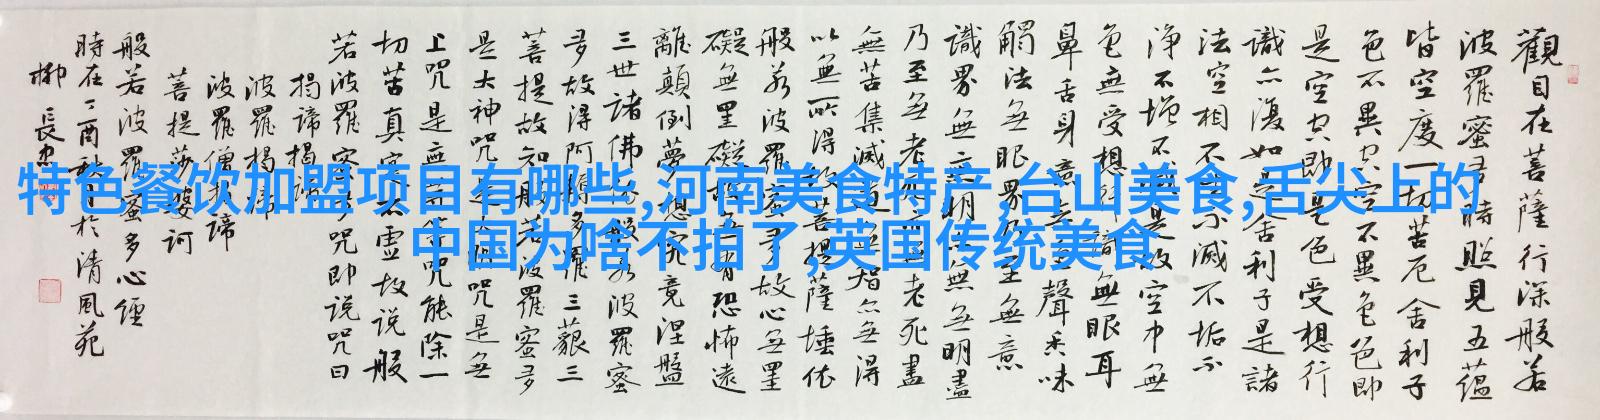 特色餐饮加盟项目有哪些,河南美食特产,台山美食,舌尖上的
中国为啥不拍了,英国传统美食
觀自在菩薩行深般若
波羅蜜多時照見五蘊
皆空度一切苦厄舍利子
色不異空空不異色色即
是空空即是色受想行
識亦復如是舍利子是諸
法空相不生不滅不垢不
淨不增不減是故空中無
色無受想行識無眼耳
鼻舌身意無色聲香味
觸法無眼界乃至無意
識界無無明亦無無明盡
乃至無老死亦無老死盡
無苦集滅道無智亦無得
以無所得故菩提薩埵依
般若波羅蜜多故心無罣
礙無罣礙故無有恐怖遠
離顛倒夢想究竟涅盤
三世諸佛依般若波羅蜜
多故得阿耨多羅三藐三
菩提故知般若波羅蜜多
是大神咒是大明咒是無
上咒是無等等咒能除一
切苦真實不虛故説般
若波羅蜜多咒即説咒曰
揭諦揭諦
波羅揭諦
波羅僧揭諦
菩提莎婆訶
般若波羅蜜多心經
時在丁酉秋月於清風苑
柳長忠